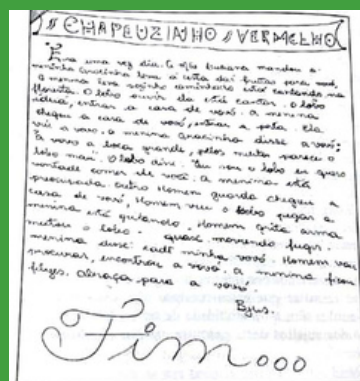 CHAPEUZINHO VERMELHO
Era uma vez dia. a mãe Susana mandou a
menina Gracinha leva a cesta das frutas para vovó.
a menina leva sozinha caminhar está cantando na
floresta. O lobo ouvir ela está cantar. O lobo
ideia, entrar a casa de vovó. a menina
chegar a casa de vovó, entrar a porta. Ela
viu a vovó. a menina Gracinha disse a vovó:
a vovó a boca grande, pelos muitos parece o
lobo mau". O lobo disse. "Eu sou o lobo eu quero
vontade comer de você. a menina está
preocupada. Outro Homem guarda chegou a
casa de vovó, Homem viu o lobo pegar a
menina está gritando. Homem grita arma
matou o lobo - quase morrendo fugir
menina disse: cadê minha vovó. Homem vai
procurar, encontrou a vovó. a menina ficou
feliz. abraça para a vovó.
Fim